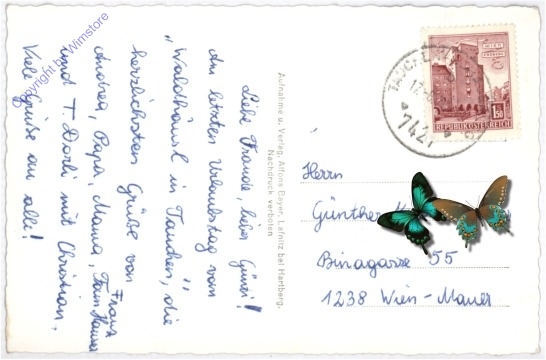 Liebe Freunde, lieber Günter!
Am letzten Urlaubstag vom
„Waldhäusl in Tauchen, die
herzlichsten Grüße von
Franz
Andrea, Papa, Mama, Fam.
und T. Dorli mit Christian,
Viele Grüße an alle!
Aufnahme u. Verlag: Alfons Bayer, Lafnitz bei Hartberg.
Nachdruck verboten
WIEN
1.50
REPUBLIK ÖSTERREICH
TAUCHEN
7421
Herrn
Günther
Binagasse 55
1238 Wien-Mauer
Copyright by Wimstore